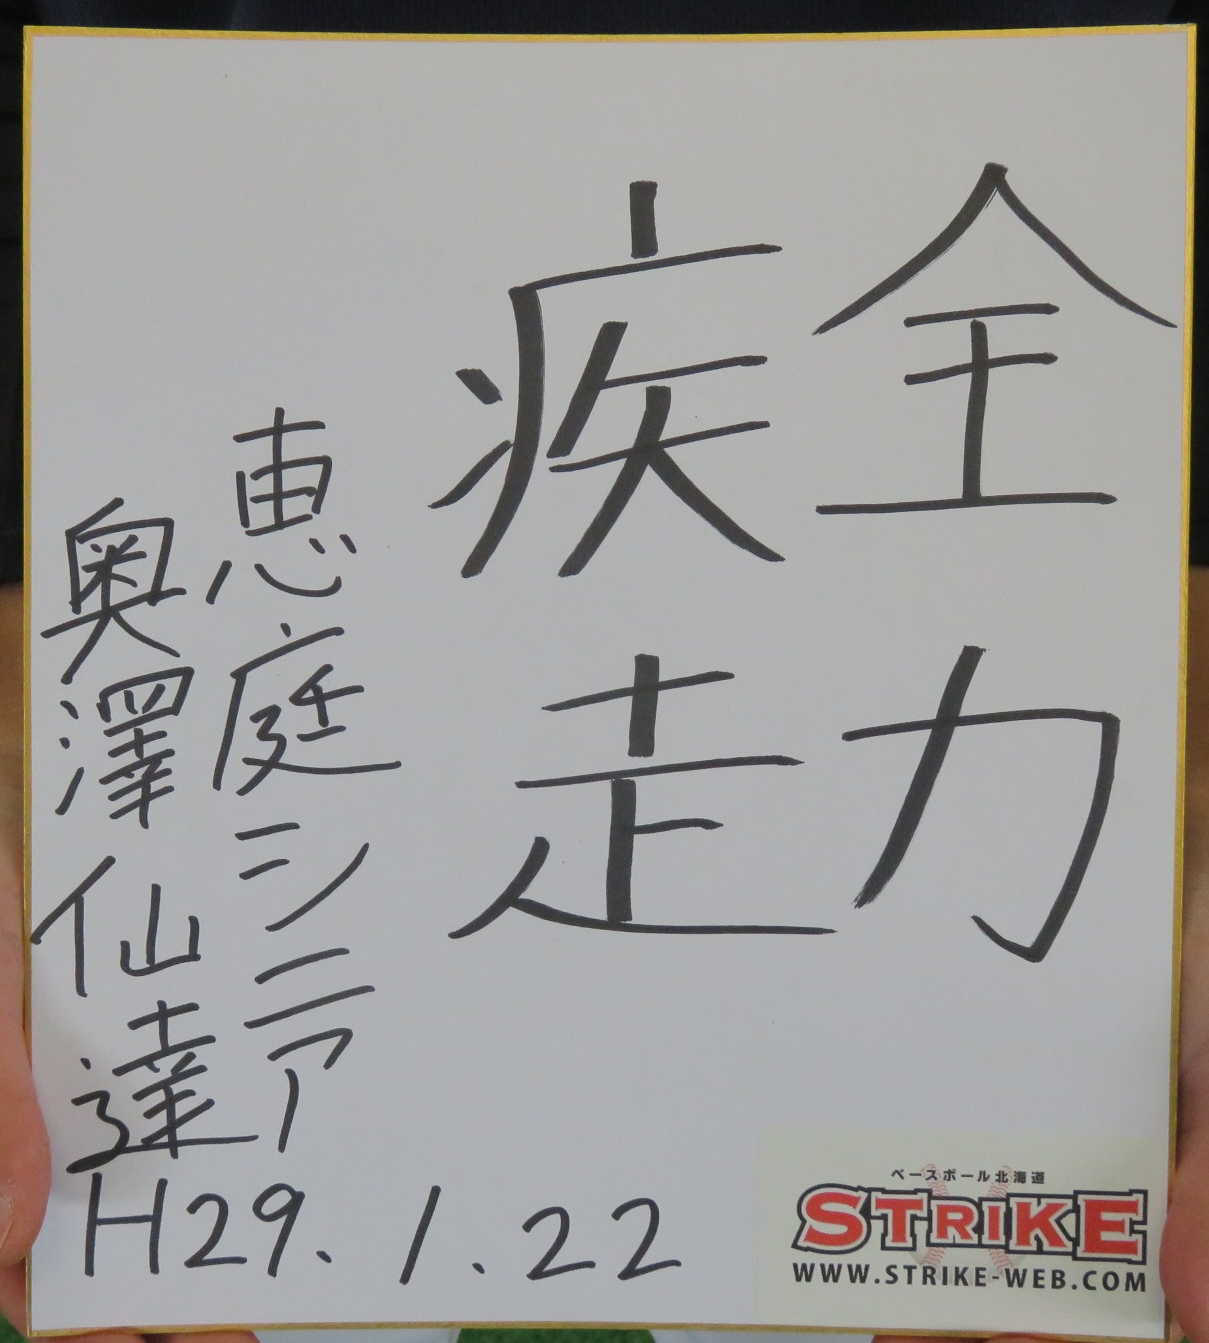 全力
疾走
恵庭シニア
奥澤仙達
H29.1.22
ベースボール北海道
STRIKE
WWW.STRIKE-WEB.COM